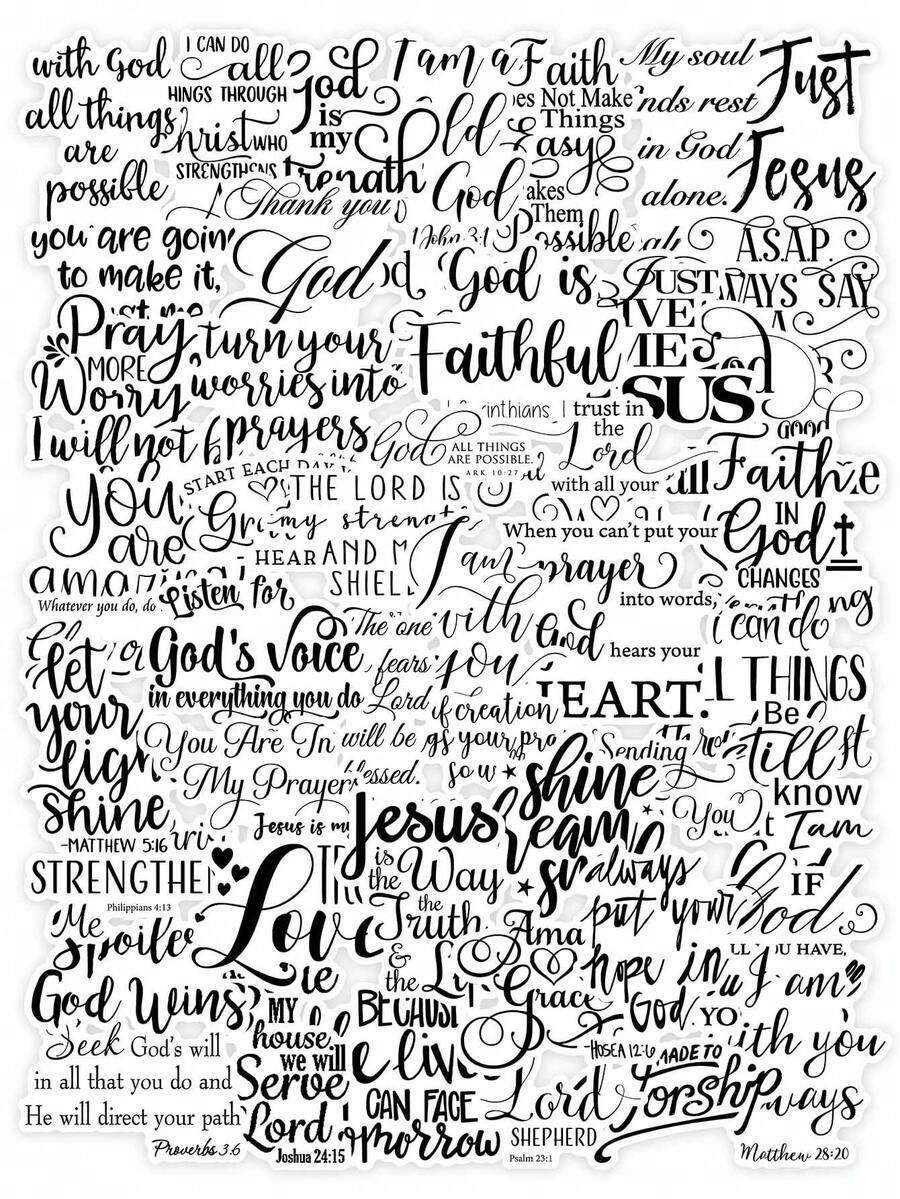 with God
all things
are
possible
I CAN DO
all
HINGS THROUGH
hrist WHO
STRENGTHENS
God
is
my
trength
I am a
ld
God
1 John 3:1
Faith
es Not Make
Things
asy
akes
Them
Possible
My soul
nds rest
in God
alone.
Just
Jesus
you are goin
to make it,
Thank you
God
God is
Faithful
JUST
IVE
ME
SUS
A.S.A.P.
WAYS SAY
Pray
MORE
Worry
turn your
worries into
prayers
I will not
God
ALL THINGS
ARE POSSIBLE.
ARK 10:27
inthians
I trust in
the
Lord
with all your
all
GOOD
Faith
IN
God
CHANGES
You
are
START EACH DAY
THE LORD IS
my strengt
HEAR
AND M
SHIEL
I am
with
you
When you can't put your
prayer
into words,
God hears your
HEART.
Whatever you do, do
Listen for
God's voice
in everything you do
let
your
ligh
shine,
-MATTHEW 5:16
The one
fears
Lord
will be
essed.
of creation
gs your pra
i can do
ALL THINGS
ng
You Are In
My Prayer
sow
shine
Sending
Be
still
know
I am
You
Jesus is my
Jesus
is
the Way
the
Truth
&
the
STRENGTHE
Philippians 4:13
Love
Me
Spoiler
God Wins
always
put your
hope in
God
-HOSEA 12:6
IF
God
OU HAVE,
YO
Ama
Grace
I am
with you
ways
Matthew 28:20
Seek God's will
in all that you do and
He will direct your path
Proverbs 3:6
MY
house
we will
Serve
Lord
Joshua 24:15
BECAUSE
e live
CAN FACE
morrow
Lord
SHEPHERD
Psalm 23:1
MADE TO
Worship